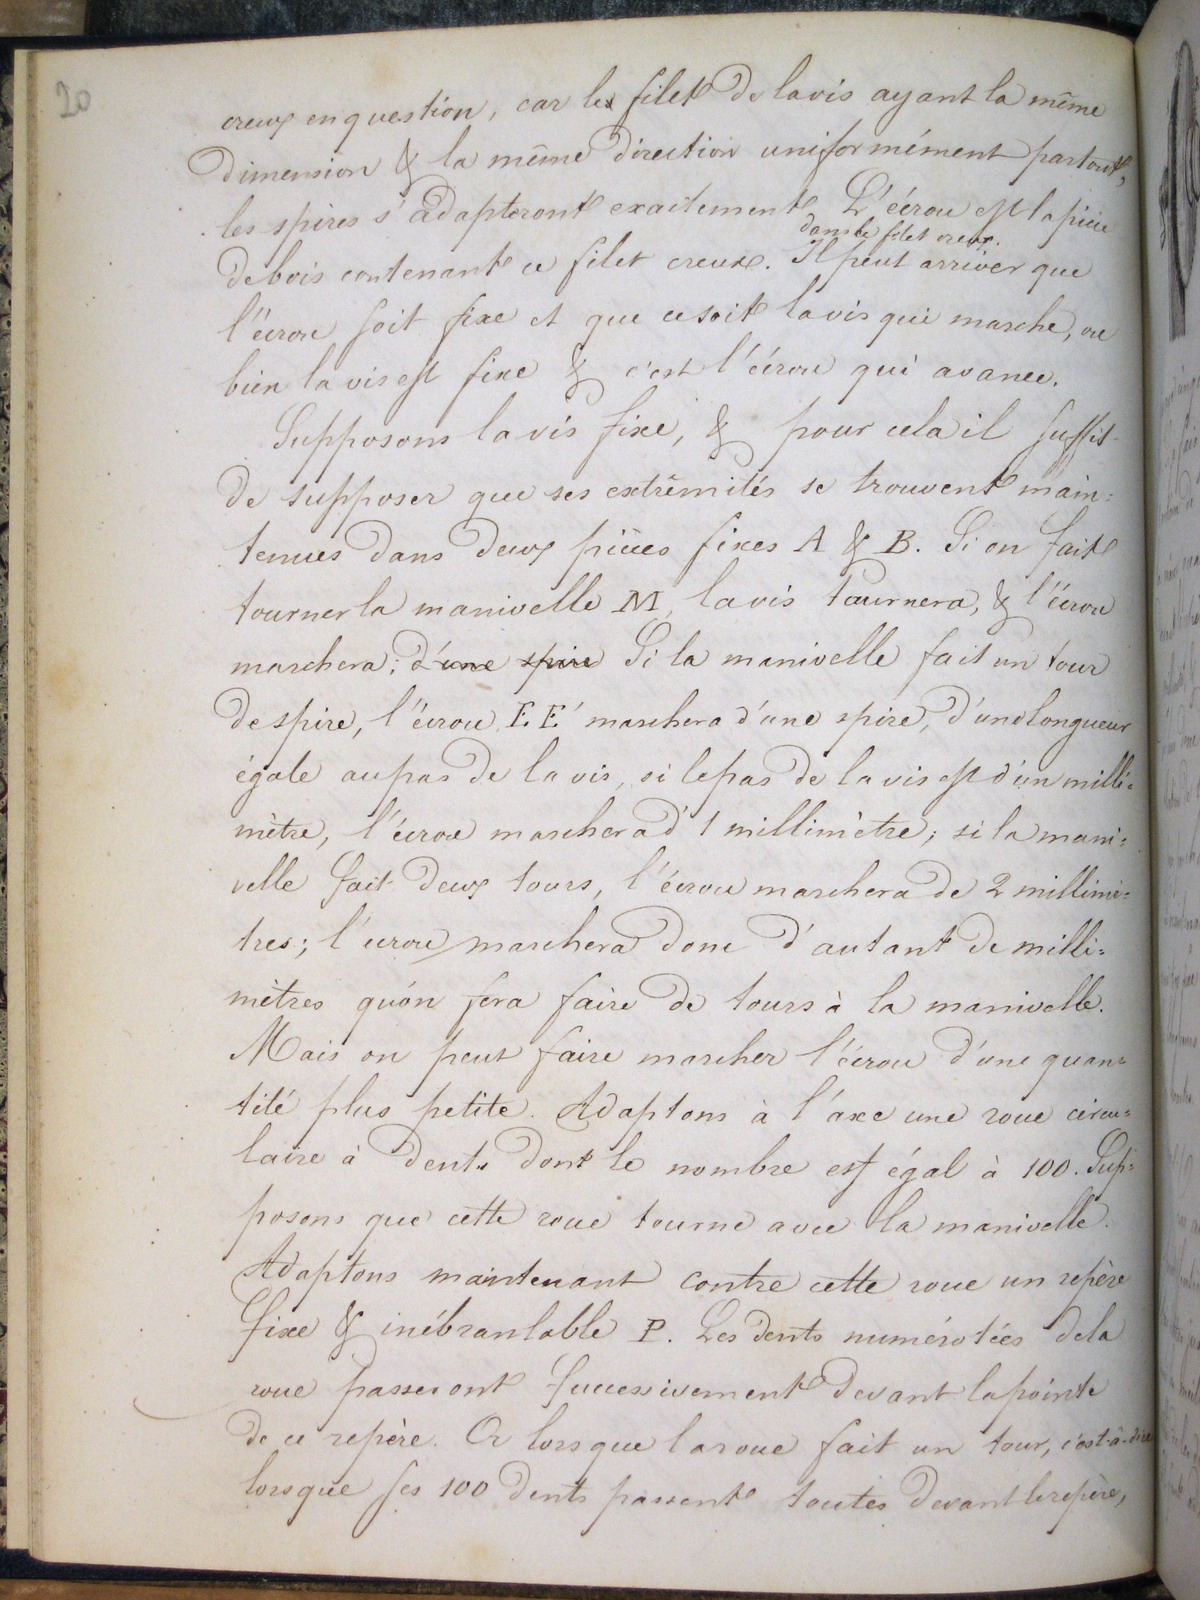 20
creux en question, car le filet de la vis ayant la même
dimension & la même direction uniformément partout,
les spires s'adapteront exactement L'écrou est la pièce
dans le filet creux.
de bois contenant ce filet creux. Il peut arriver que
l'écrou soit fixe et que ce soit la vis qui marche, ou
bien la vis est fixe & c'est l'écrou qui avance.
Supposons la vis fixe, & pour cela il suffit
de supposer que ses extrêmités se trouvent main=
tenues dans deux pièces fixes A & B. Si on fait
tourner la manivelle M, la vis tournera, & l'écrou
marchera; d'une spire Si la manivelle fait un tour
de spire, l'écrou E E' marchera d'une spire, d'une longueur
égale au pas de la vis, si le pas de la vis est d'un milli=
mètre, l'écrou marchera d'1 millimètre; si la mani=
velle fait deux tours, l'écrou marchera de 2 millimè=
tres; l'écrou marchera donc d'autant de milli=
mètres qu'on fera faire de tours à la manivelle.
Mais on peut faire marcher l'écrou d'une quan=
tité plus petite. Adaptons à l'axe une roue circu=
laire à dents dont le nombre est égal à 100. Sup=
posons que cette roue tourne avec la manivelle.
Adaptons maintenant contre cette roue un repère
fixe & inébranlable P. Les dents numérotées de la
roue passeront successivement devant la pointe
de ce repère. Or lorsque la roue fait un tour, c'est-à-dire
lorsque ses 100 dents passent toutes devant le repère,